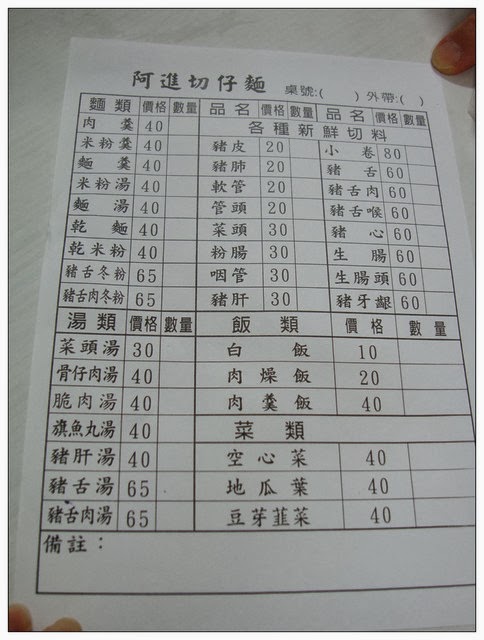 阿進切仔麵 桌號:( ) 外帶:( )
麵類 價格 數量 品名 價格 數量 品名 價格 數量
肉羹 40 各種新鮮切料
米粉羹 40 豬皮 20 小卷 80
麵羹 40 豬肺 20 豬舌 60
米粉湯 40 軟管 20 豬舌肉 60
麵湯 40 管頭 20 豬舌喉 60
乾麵 40 菜頭 30 豬心 60
乾米粉 40 粉腸 30 生腸 60
豬舌冬粉 65 咽管 30 生腸頭 60
豬舌肉冬粉 65 豬肝 30 豬牙齦 60
湯類 價格 數量 飯類 價格 數量
菜頭湯 30 白飯 10
骨仔肉湯 40 肉燥飯 20
脆肉湯 40 肉羹飯 40
旗魚丸湯 40 菜類
豬肝湯 40 空心菜 40
豬舌湯 65 地瓜葉 40
豬舌肉湯 65 豆芽韮菜 40
備註：